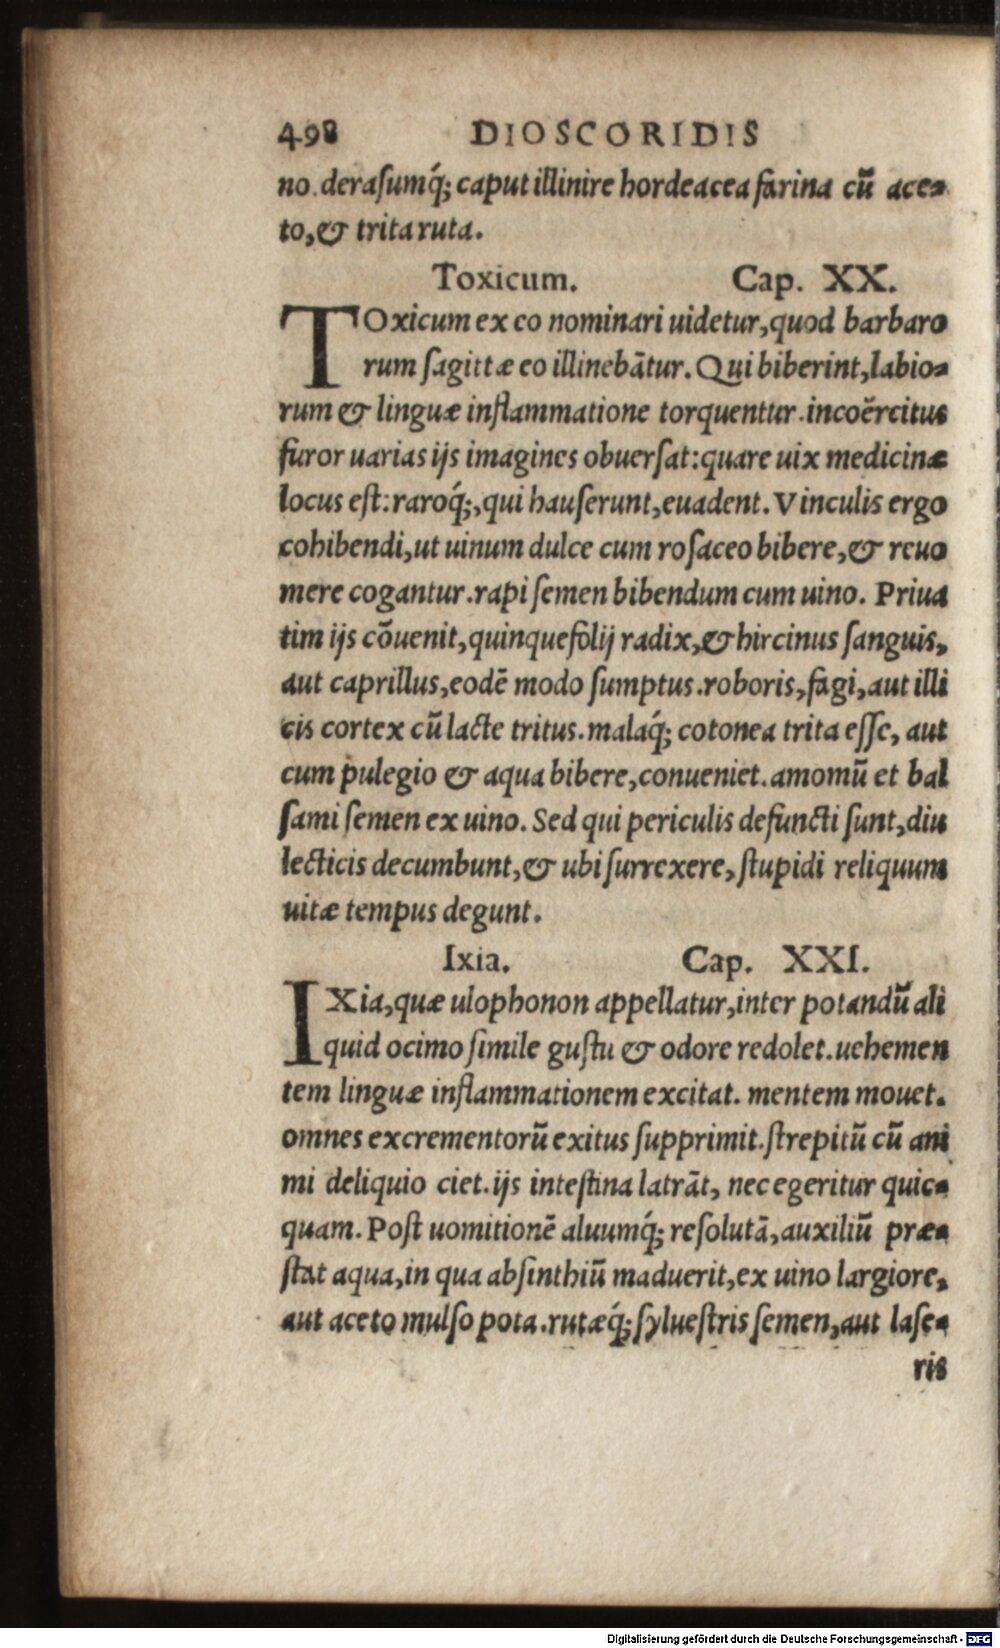 498 DIOSCORIDIS
no. derasumq́; caput illinire hordeacea farina cū ace-
to, & trita ruta.
Toxicum. Cap. XX.
TOxicum ex eo nominari uidetur, quod barbaro
rum sagittæ eo illinebātur. Qui biberint, labio-
rum & linguæ inflammatione torquentur. incoërcitus
furor uarias ijs imagines obuersat: quare uix medicinæ
locus est: raroq́;, qui hauserunt, euadent. Vinculis ergo
cohibendi, ut uinum dulce cum rosaceo bibere, & reuo
mere cogantur. rapi semen bibendum cum uino. Priua
tim ijs cōuenit, quinquefolij radix, & hircinus sanguis,
aut caprillus, eodē modo sumptus. roboris, fagi, aut illi
cis cortex cū lacte tritus. malaq́; cotonea trita esse, aut
cum pulegio & aqua bibere, conueniet. amomū et bal
sami semen ex uino. Sed qui periculis defuncti sunt, diu
lecticis decumbunt, & ubi surrexere, stupidi reliquum
uitæ tempus degunt.
Ixia. Cap. XXI.
IXia, quæ ulophonon appellatur, inter potandū ali
quid ocimo simile gustu & odore redolet. uehemen
tem linguæ inflammationem excitat. mentem mouet.
omnes excrementorū exitus supprimit. strepitū cū ani
mi deliquio ciet. ijs intestina latrāt, nec egeritur quic-
quam. Post uomitionē aluumq́; resolutā, auxiliū præ-
stat aqua, in qua absinthiū maduerit, ex uino largiore,
aut aceto mulso pota. rutæq́; syluestris semen, aut lase-
ris
Digitalisierung gefördert durch die Deutsche Forschungsgemeinschaft - DFG